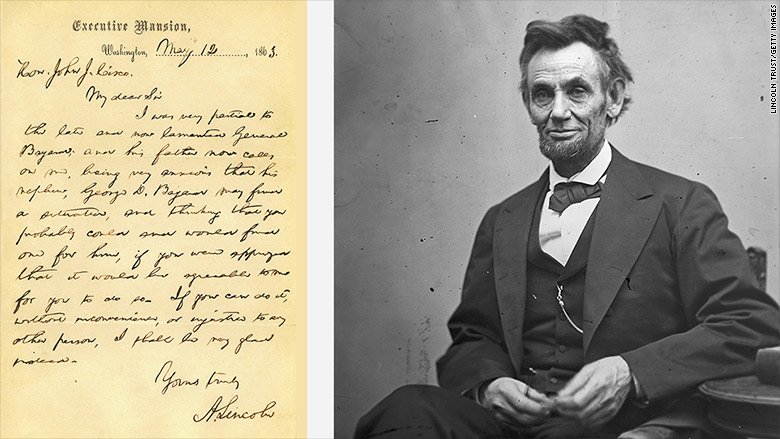 Executive Mansion,
Washington, May 12, 1863.
Hon. John J. Cisco.
My dear Sir
I was very partial to
the late and now lamented General
Bayard: and his father now calls
on me, being very anxious that his
nephew, George D. Bayard may find
a situation, and thinking that you
probably could and would find
one for him, if you were apprized
that it would be agreeable to me
for you to do so— If you can do it,
without inconvenience, or injustice to any
other person, I shall be very glad
indeed.
Yours truly
A. Lincoln
LINCOLN TRUST/GETTY IMAGES